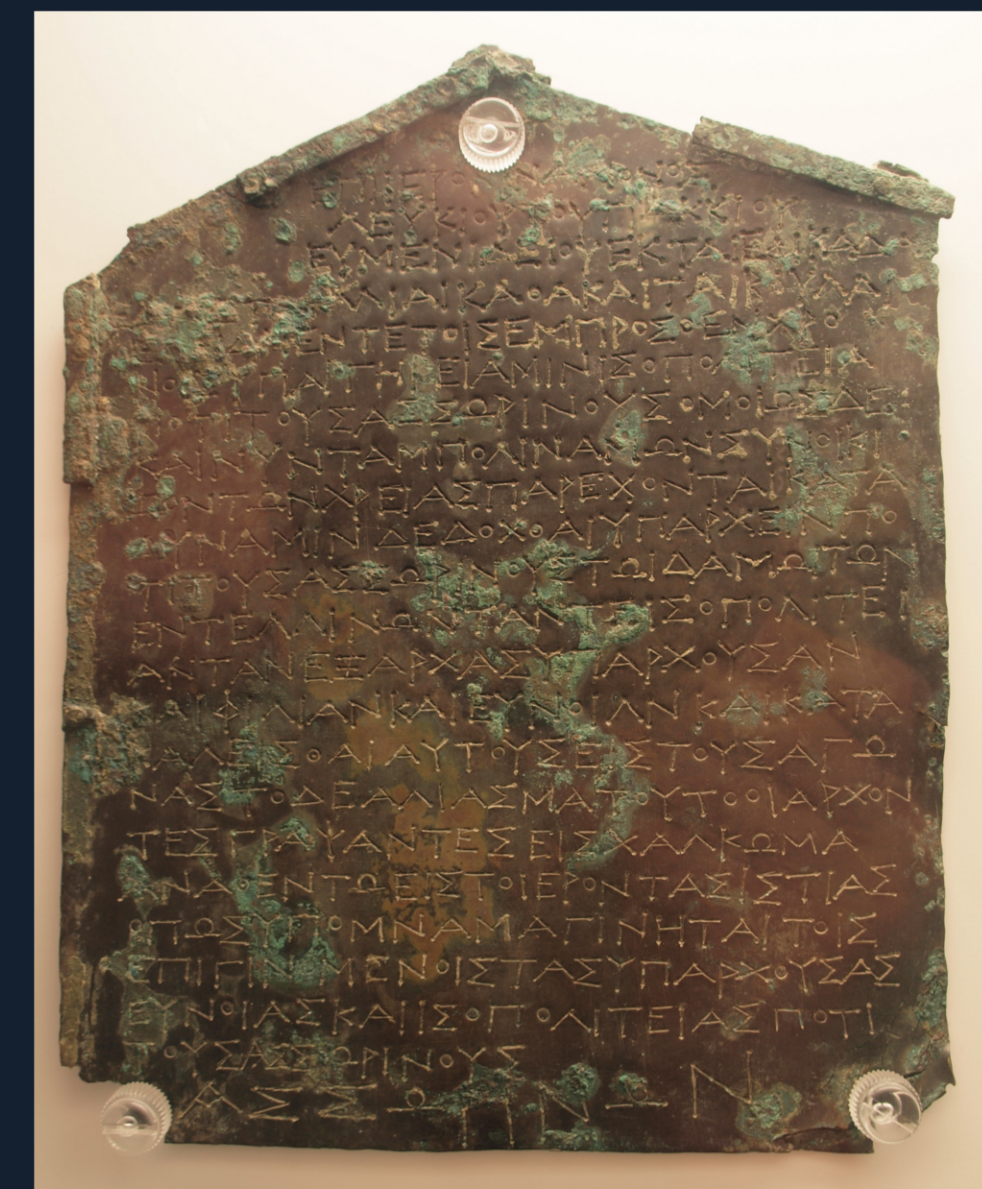 ΕΠΙΙΕΡΟΜΝΑΜΟΝΟΣ
ΛΕΥΚΙΟΥΤΟΥΠ
ΕΥΜΕΝΙΔΑΙΟΥΕΚΤΑΙΕΠΙΚΑΔΑ
ΑΛΙΑΙΚΑΘΑΚΑΙΤΑΙΒΟΥΛΑΙ
ΕΝΤΕΤΟΙΣΕΜΠΡΟΣΘΕΝΧΡΟ
ΕΙΑΜΙΝΙΣΟΠΟΛΙΤΕΙΑ
ΠΟΤΙΤΟΥΣΑΣΣΩΡΙΝΟΥΣΟΜΟΙΩΣΔΕ
ΚΑΙΝΥΝΤΑΜΠΟΛΙΝΑΜΩΝΣΥΝΟΙΚΙ
ΖΟΝΤΩΝΧΡΕΙΑΣΠΑΡΕΧΟΝΤΑΙΚΑΤΑ
ΔΥΝΑΜΙΝΔΕΔΟΧΘΑΙΥΠΑΡΧΕΙΝΠΟ
ΤΙΤΟΥΣΑΣΣΩΡΙΝΟΥΣΤΩΙΔΑΜΩΙΤΩΝ
ΕΝΤΕΛΛΙΝΩΝΤΑΝΤΕΙΣΟΠΟΛΙΤΕΙ
ΑΝΤΑΝΕΞΑΡΧΑΣΥΠΑΡΧΟΥΣΑΝ
ΚΑΙΦΙΛΙΑΝΚΑΙΕΥΝΟΙΑΝΚΑΚΑΤΑ
ΚΑΛΕΙΣΘΑΙΑΥΤΟΥΣΕΙΣΤΟΥΣΑΓΩ
ΝΑΣΤΟΔΕΑΛΙΑΣΜΑΤΟΥΤΟΟΙΑΡΧΟΝ
ΤΕΣΓΡΑΨΑΝΤΕΣΕΙΣΧΑΛΚΩΜΑ
ΑΝΑΘΕΝΤΩΕΙΣΤΟΙΕΡΟΝΤΑΣΙΣΤΙΑΣ
ΟΠΩΣΥΠΟΜΝΑΜΑΓΙΝΗΤΑΙΤΟΙΣ
ΕΠΙΓΙΝΟΜΕΝΟΙΣΤΑΣΥΠΑΡΧΟΥΣΑΣ
ΕΥΝΟΙΑΣΚΑΙΙΣΟΠΟΛΙΤΕΙΑΣΠΟΤΙ
ΤΟΥΣΑΣΣΩΡΙΝΟΥΣ
ΑΣΣΩΡΙΝΩΝ